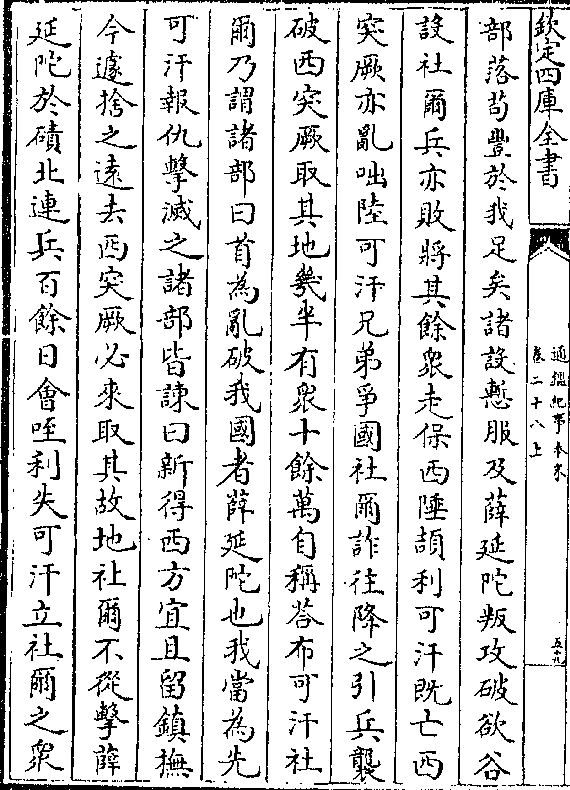 欽定四庫全書
通鑑紀事本末
卷二十八上
五十九
部落苟豐於我足矣諸設慙服及薛延陀叛攻破欲谷
設社爾兵亦敗將其餘衆走保西陲頡利可汗既亡西
突厥亦亂咄陸可汗兄弟爭國社爾詐往降之引兵襲
破西突厥取其地幾半有衆十餘萬自稱荅布可汗社
爾乃謂諸部曰首為亂破我國者薛延陀也我當為先
可汗報仇擊滅之諸部皆諫曰新得西方宜且留鎮撫
今遽捨之遠去西突厥必來取其故地社爾不從擊薛
延陀於磧北連兵百餘日會咥利失可汗立社爾之衆